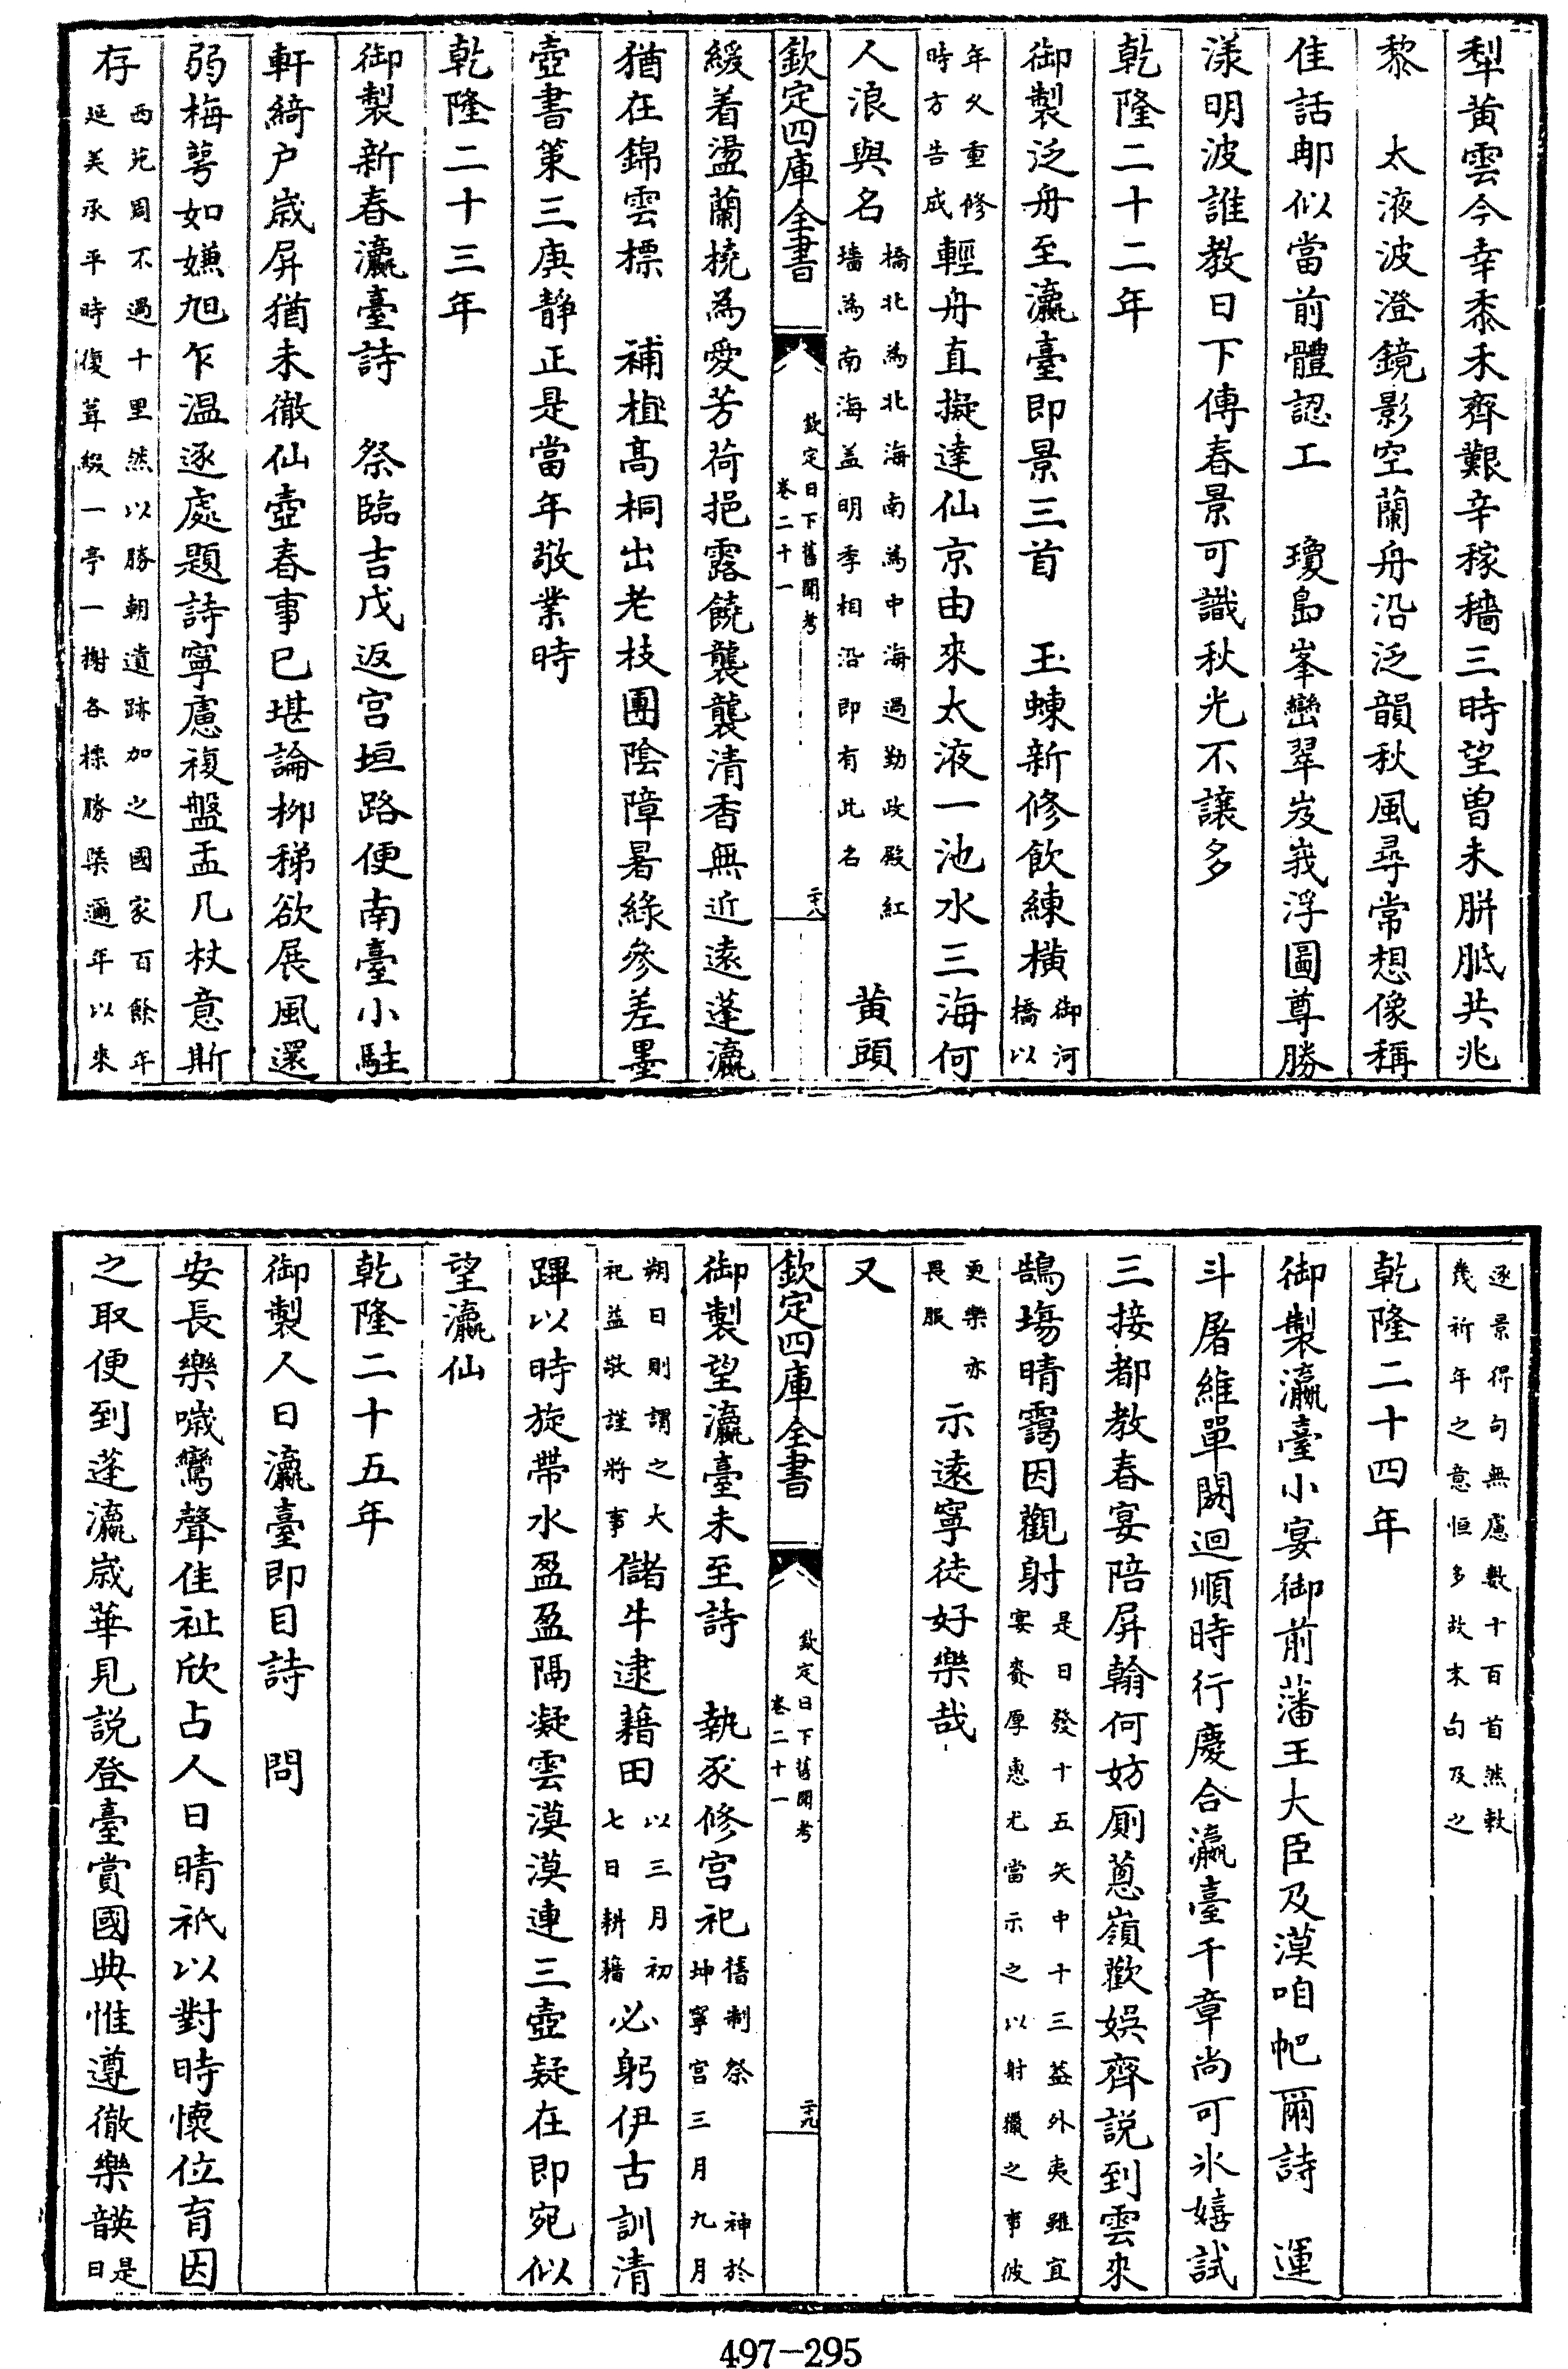 犁黃雲今幸黍禾齊艱辛稼穡三時望曾未胼胝共兆
黎　太液波澄鏡影空蘭舟沿泛韻秋風尋常想像稱
佳話那似當前體認工　瓊島峯巒翠岌峩浮圖尊勝
漾明波誰教日下傳春景可識秋光不讓多
乾隆二十二年
御製泛舟至瀛臺即景三首　玉蝀新修飲練橫御河橋以
年久重修時方告成輕舟直擬達仙京由來太液一池水三海何
人浪與名橋北為北海南為中海過勤政殿紅墻為南海盖明季相沿即有此名　黃頭
欽定四庫全書
欽定日下舊聞考
卷二十一
二十八
緩着盪蘭橈為愛芳荷挹露饒襲襲清香無近遠蓬瀛
猶在錦雲標　補植髙桐出老枝團陰障暑綠參差墨
壺書策三庚靜正是當年敬業時
乾隆二十三年
御製新春瀛臺詩　祭臨吉戊返宫垣路便南臺小駐
軒綺户歲屏猶未徹仙壺春事已堪論柳稊欲展風還
弱梅萼如嫌旭乍温逐處題詩寧慮複盤盂几杖意斯
存西苑周不過十里然以勝朝遺跡加之國家百餘年延羙承平時復葺綴一亭一榭各標勝槩邇年以來
逐景得句無慮數十百首然敕幾祈年之意恒多故末句及之
乾隆二十四年
御製瀛臺小宴御前藩王大臣及漠咱帊爾詩　運
斗屠維單閼迴順時行慶合瀛臺千章尚可氷嬉試
三接都教春宴陪屏翰何妨厠蔥嶺歡娯齊說到雲來
鵠塲晴靄因觀射是日發十五矢中十三益外夷雖宜宴賚厚惠尤當示之以射獵之事彼
更樂亦畏服　示遠寧徒好樂哉
又
欽定四庫全書
欽定日下舊聞考
卷二十一
二十九
御製望瀛臺未至詩　執豕修宫祀舊制祭神於坤寧宫三月九月
朔日則謂之大祀益敬謹將事儲牛逮藉田以三月初七日耕藉必躬伊古訓清
蹕以時旋帶水盈盈隔凝雲漠漠連三壺疑在即宛似
望瀛仙
乾隆二十五年
御製人日瀛臺即目詩　問
安長樂噦鸞聲佳祉欣占人日晴祇以對時懷位育因
之取便到蓬瀛歲華見説登臺賞國典惟遵徹樂韺是日
497-295